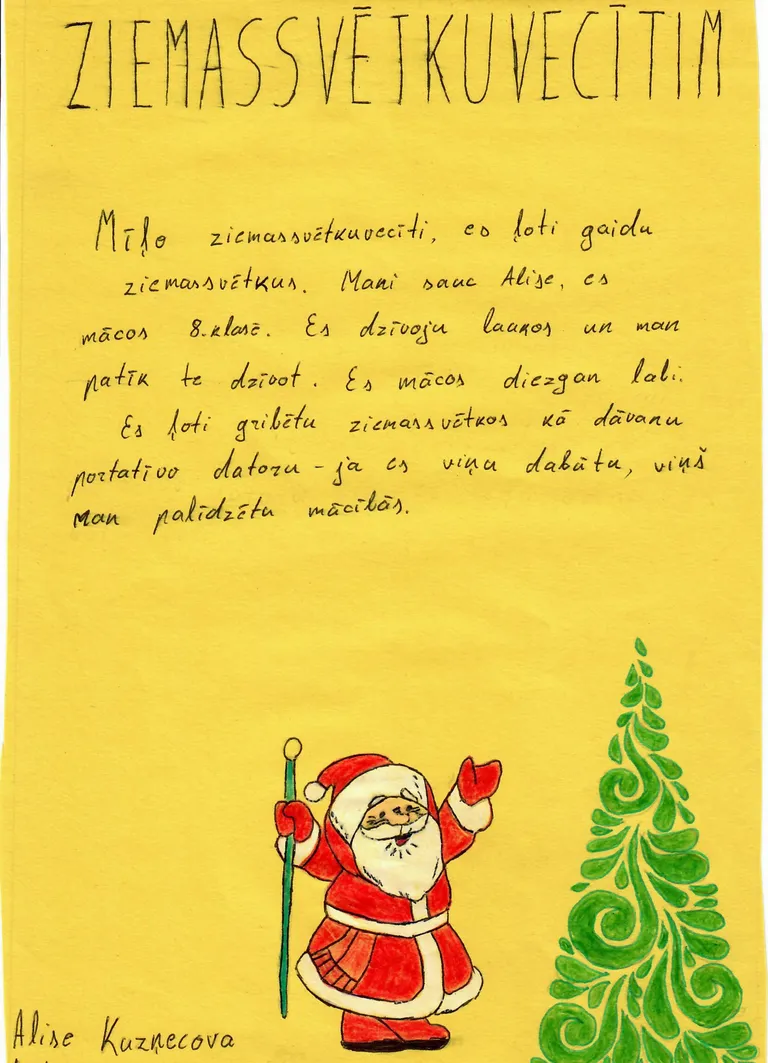 ZIEMASSVĒTKUVECĪTIM
Mīļo ziemassvētkuvecīti, es ļoti gaidu
ziemassvētkus. Mani sauc Alise, es
mācos 8.klasē. Es dzīvoju laukos un man
patīk te dzīvot. Es mācos diezgan labi.
Es ļoti gribētu ziemassvētkos kā dāvanu
portatīvo datoru - ja es viņu dabūtu, viņš
man palīdzētu mācībās.
Alise Kuzņecova